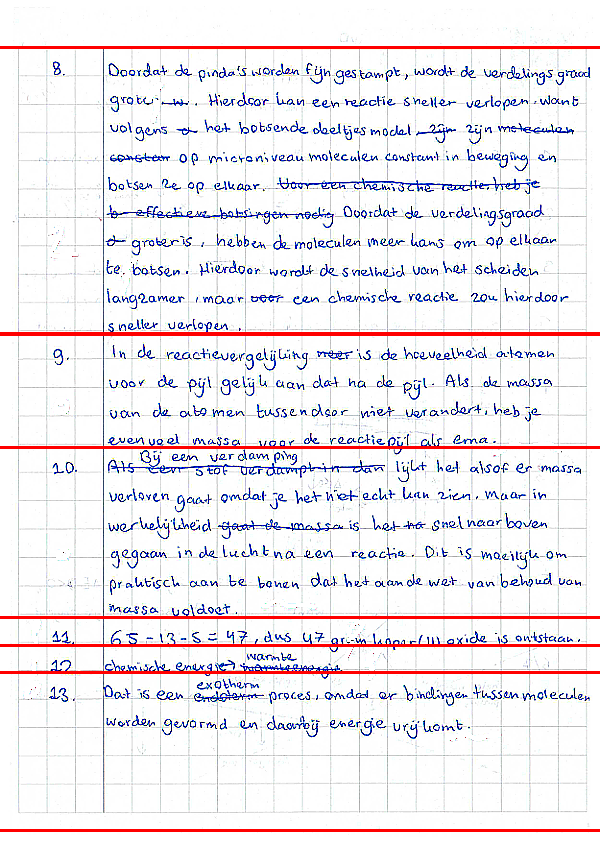 8. Doordat de pinda's worden fijn gestampt, wordt de verdelingsgraad
groter. Hierdoor kan een reactie sneller verlopen. Want
volgens het botsende deeltjes model zijn zijn moleculen
constant op microniveau moleculen constant in beweging en
botsen ze op elkaar. Voor een chemische reactie heb je
effectieve botsingen nodig Doordat de verdelingsgraad
groter is, hebben de moleculen meer kans om op elkaar
te botsen. Hierdoor wordt de snelheid van het scheiden
langzamer, maar voor een chemische reactie zou hierdoor
sneller verlopen.
9. In de reactievergelijking is de hoeveelheid atomen
voor de pijl gelijk aan dat na de pijl. Als de massa
van de atomen tussendoor niet verandert, heb je
evenveel massa voor de reactiepijl als erna.
Bij een verdamping
10. Als een stof verdampt in dan lijkt het alsof er massa
verloren gaat omdat je het niet echt kan zien, maar in
werkelijkheid gaat de massa is het na snel naar boven
gegaan in de lucht na een reactie. Dit is moeilijk om
praktisch aan te tonen dat het aan de wet van behoud van
massa voldoet.
11. 65-13-5=47, dus 47 gram koper(II)oxide is ontstaan.
warmte
12 chemische energie → warmteenergie
exotherm
13. Dat is een endoterm proces, omdat er bindingen tussen moleculen
worden gevormd en daarbij energie vrijkomt.